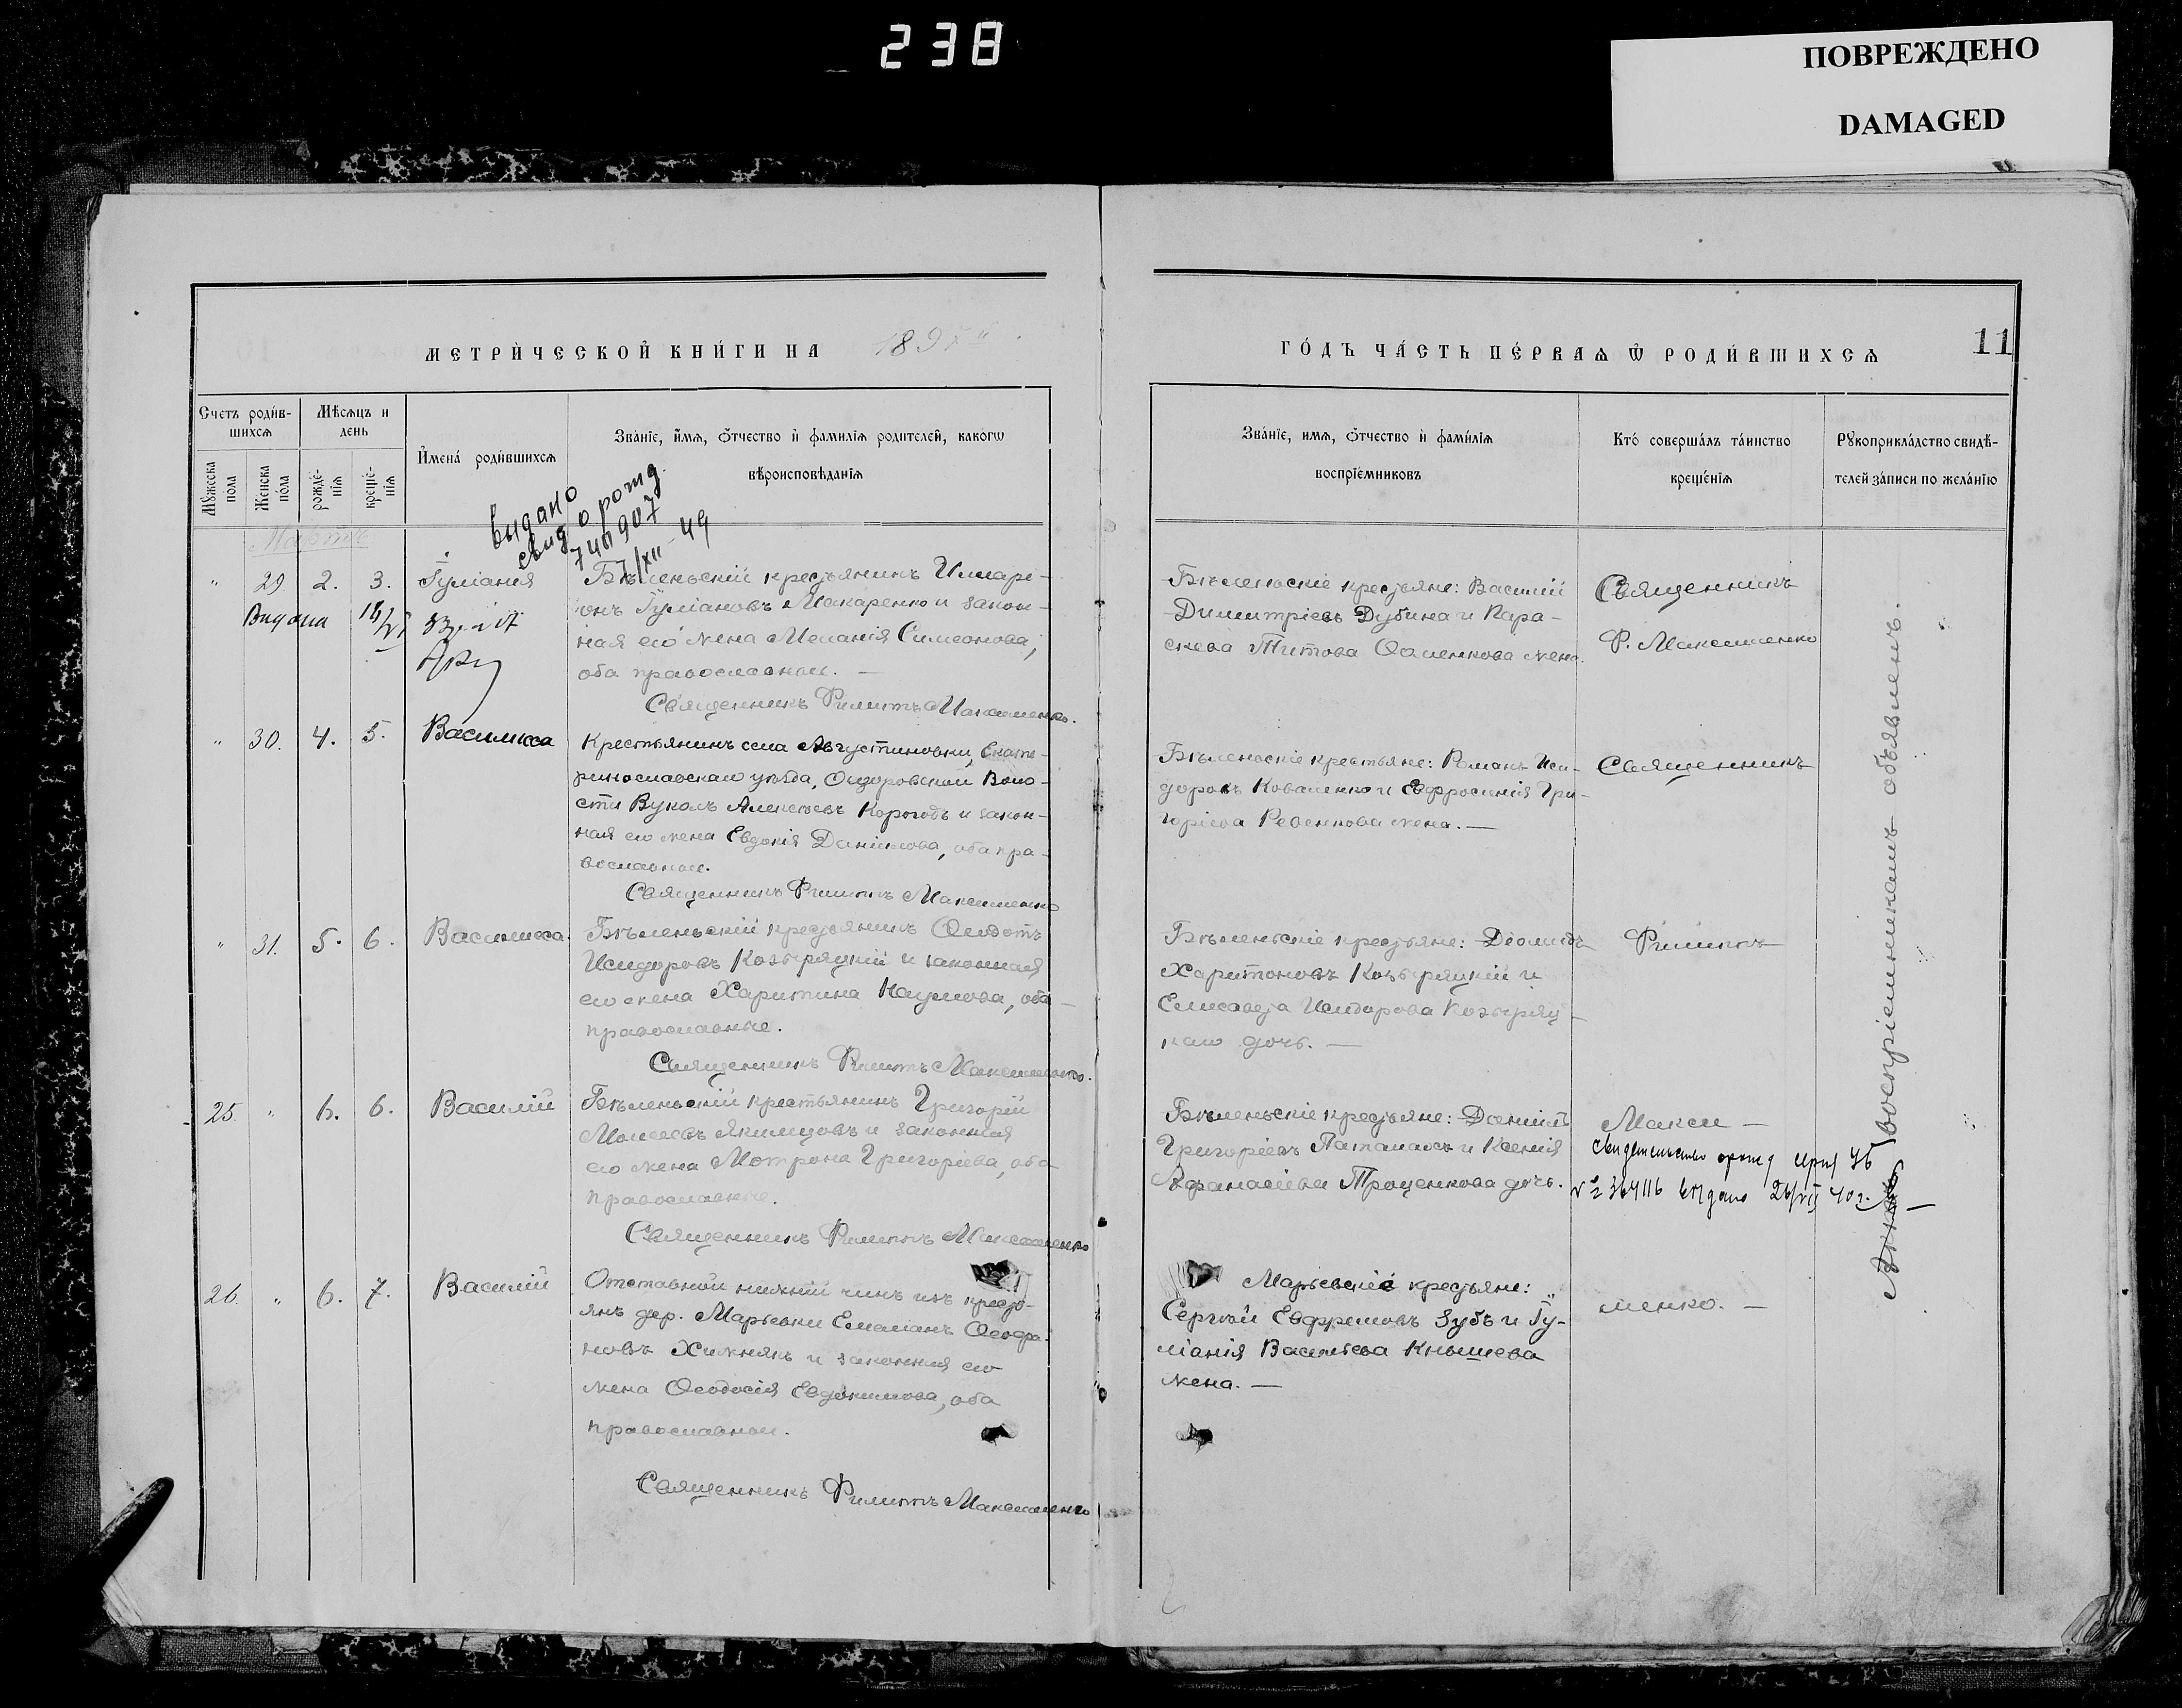 238
ПОВРЕЖДЕНО
DAMAGED
МЕТРИ́ЧЕСКОЙ КНИ́ГИ НА 1897
ГО́ДЪ ЧА́СТЬ ПЕ́РВАѦ Ѿ РОДИ́ВШИХСѦ
11
Счетъ роди́в-
шихсѧ
Мѣсѧцъ и
день
И҆мена́ роди́вшихсѧ
Зва́нїе, и҆́мѧ, ѻ҆́тчество и҆ фами́лїѧ роди́телей, како́гѡ
вѣроисповѣ́данїѧ
Мꙋ́жеска
по́ла
Же́нска
по́ла
рожде́-
нїѧ
креще́-
нїѧ
Зва́нїе, имѧ, ѻ҆́тчество и҆ фами́лїѧ
воспрїе́мниковъ
Кто́ соверша́лъ та́инство
креще́нїѧ
Рꙋкоприкла́дство свидѣ́-
телей за́писи по жела́нїю
Мартъ
видано
свид о рожд
7/XII-49
" 29 2. 3. Іуліанія
Бѣленьскій крестьянинъ Иларі-
онъ Іуліановъ Макаренко и закон-
ная его жена Меланія Симеонова,
оба православные. —
Священникъ Филиппъ Максименко.
Видана
Бѣленьскіе крестьяне: Василій
Димитріевъ Дубина и Пара-
скева Титова жена.
Священникъ
Ф. Максименко
" 30. 4. 5. Василисса
Крестьянинъ села Августиновки, Екате-
ринославскаго уѣзда, Сидоровской Воло-
сти Вуколъ Алексѣевъ Корогодъ и закон-
ная его жена Евдокія Даніилова, оба пра-
вославные.
Священникъ Филиппъ Максименко
Бѣленьскіе крестьяне: Романъ Иси-
доровъ Коваленко и Евфросинія Гри-
горіева Ревенкова жена. —
Священникъ
" 31. 5. 6. Василисса.
Бѣленьскій крестьянинъ Ѳеодотъ
Исидоровъ Козыряцкій и законная
его жена Харитина Наумова, оба
православные.
Священникъ Филиппъ Максименко.
Бѣленьскіе крестьяне: Діомидъ
Харитоновъ Козыряцкій и
Елисавета Исидорова Козыряц-
каго дочь. —
Филиппъ
25. " 6. 6. Василій
Бѣленьскій крестьянинъ Григорій
Моисеевъ Якимцовъ и законная
его жена Мотрона Григоріева, оба
православные.
Священникъ Филиппъ Максименко
Бѣленьскіе крестьяне: Даніилъ
Григоріевъ Паталахъ и Ксенія
Аѳанасіева Троценкова дочь.
Макси —
Свидетельство
№ 364116 выдано 26/VII 40 г.
26. " 6. 7. Василій
Отставной нижній чинъ изъ кресть-
янъ дер. Марьевки Емеліанъ
Хижнякъ и законная его
жена Ѳеодосія Евдокимова, оба
православные.
Священникъ Филиппъ Максименко
Марьевскіе крестьяне:
Сергѣй Евфремовъ Зубъ и Іу-
ліанія Васильева Кнышева
жена. —
менко. —
воспріемникамъ объявленъ.